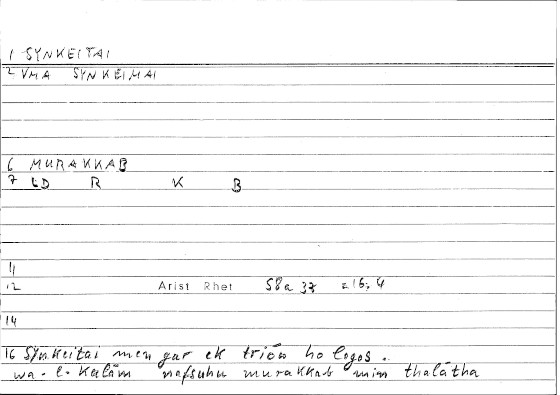 1 SYNKEITAI
2 VMA SYNKEIMAI
6 MURAKKAB
7 LD R K B
11
12 Arist Rhet 58a 37 = 16,4
14
16 Synkeitai men gar ek triōn ho logos.
wa-l-kalām nafsuhu murakkab min thalātha